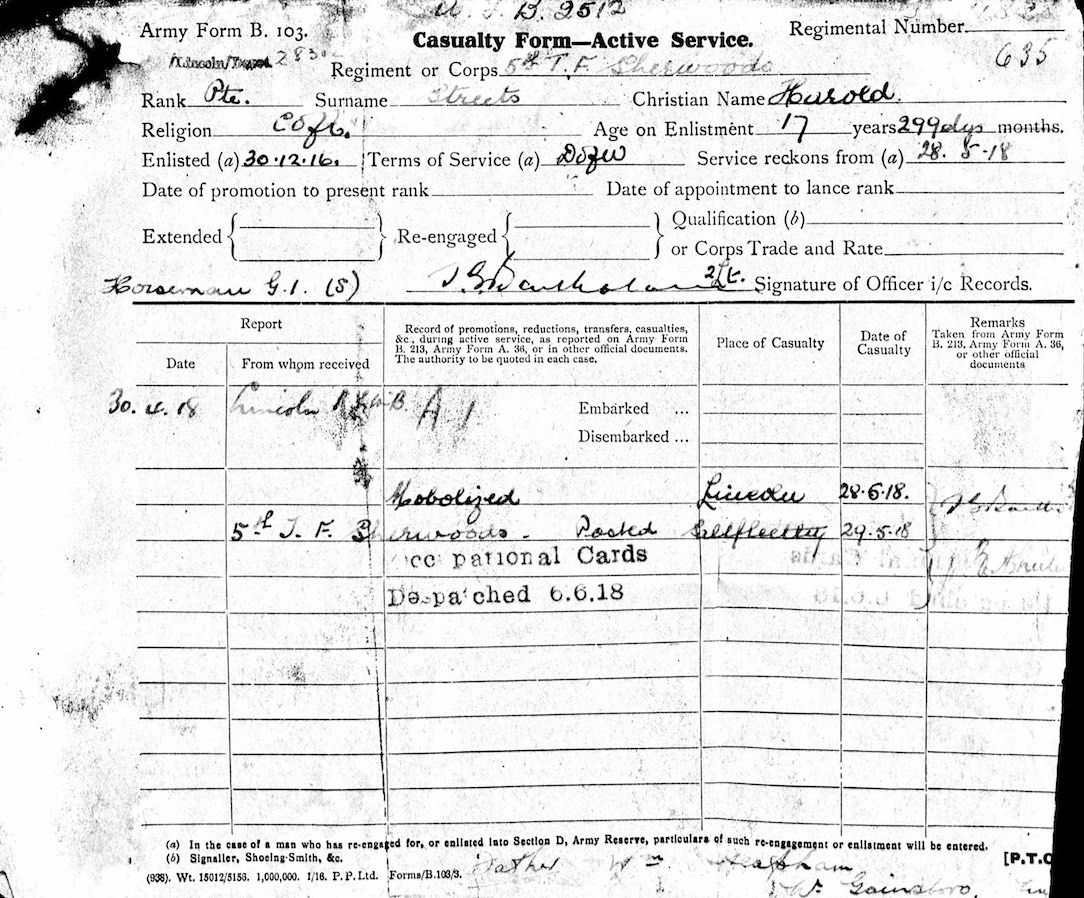 Army Form B. 103.
Casualty Form—Active Service.
Regimental Number
635
Regiment or Corps 5th T.F. Sherwoods
Rank Pte. Surname Streets Christian Name Harold.
Religion C of E. Age on Enlistment 17 years 299 dys months.
Enlisted (a) 30.12.16. Terms of Service (a) DofW Service reckons from (a) 28.5.18
Date of promotion to present rank Date of appointment to lance rank
Extended Re-engaged Qualification (b)
or Corps Trade and Rate
Horseman G.1. (S) 2/Lt. Signature of Officer i/c Records.
Report
Date From whom received
Record of promotions, reductions, transfers, casualties,
&c., during active service, as reported on Army Form
B. 213, Army Form A. 36, or in other official documents.
The authority to be quoted in each case.
Place of Casualty
Date of
Casualty
Remarks
Taken from Army Form
B. 213, Army Form A. 36,
or other official
documents
30.4.18 Lincoln A 1
Embarked ...
Disembarked ...
Mobolized Lincoln 28.5.18.
5th T. F. Sherwoods. Posted 29.5.18
cc pational Cards
Despatched 6.6.18
(a) In the case of a man who has re-engaged for, or enlisted into Section D, Army Reserve, particulars of such re-engagement or enlistment will be entered.
(b) Signaller, Shoeing-Smith, &c.
(938). Wt. 15012/5156. 1,000,000. 1/16. P. P. Ltd. Forms/B.103/3.
[P.T.O
Father Wm
Gainsboro,